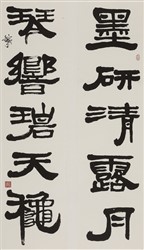 墨研清露月
琴響碧天龝